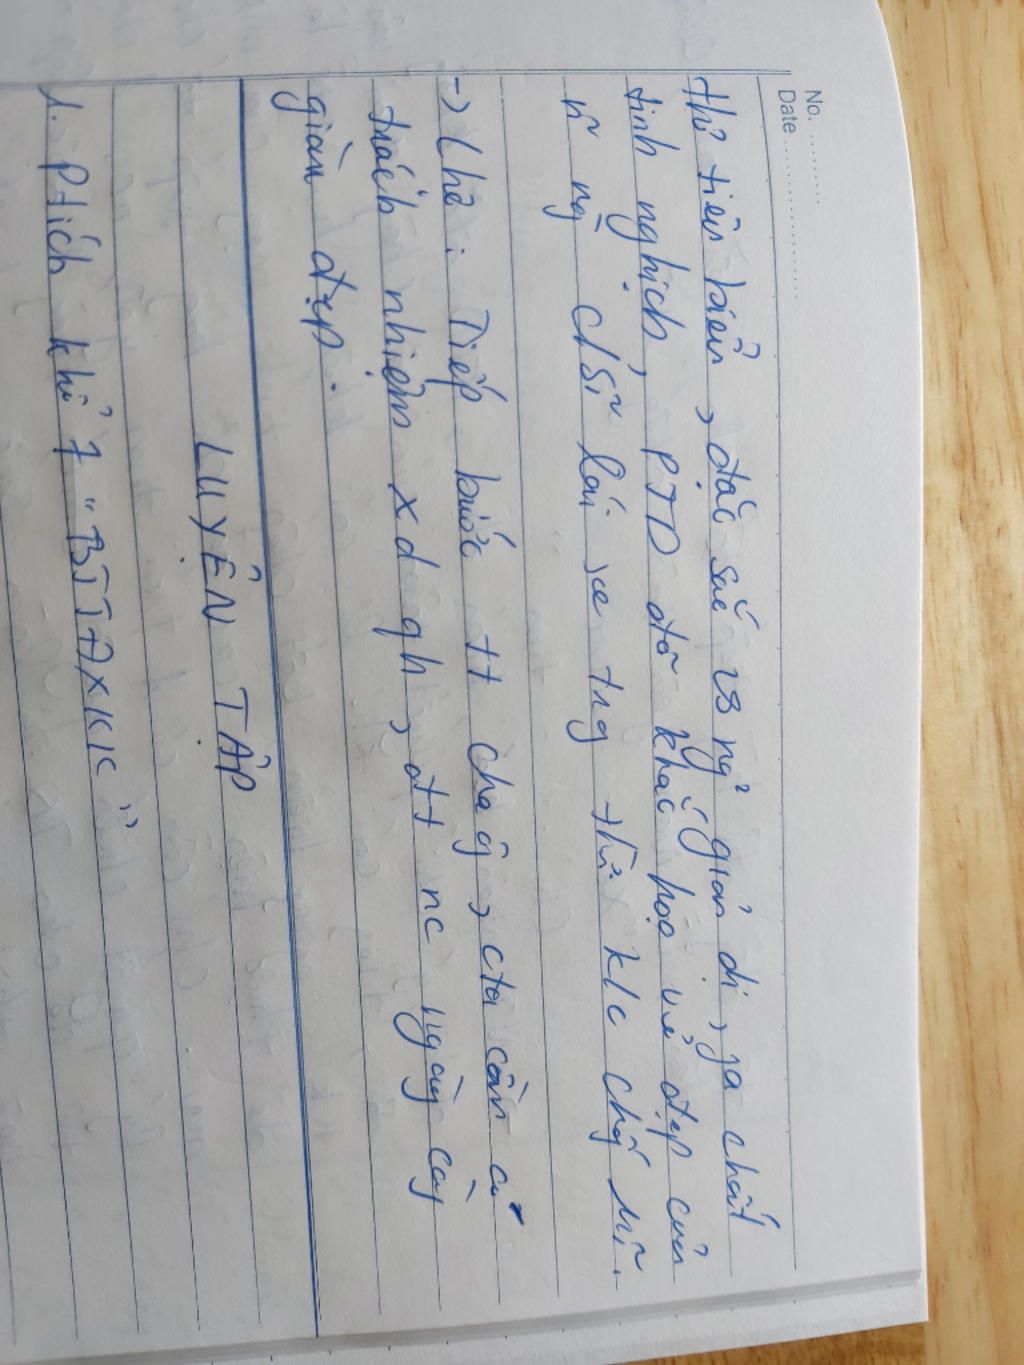 No. ............
Date ......................
thơ tiêu biểu, đặc sắc vs ng² giản dị, ja chất
tinh nghịch, PTD đã khắc họa vẻ đẹp của
n~ ng` c/sĩ lái xe tr'g thời k/c chg~ Mĩ.
-> Lhệ: Tiếp bước tt cha ô, cta cần có
trách nhiệm xd qh, đt nc ngày càg
giàu đẹp.
LUYỆN TẬP
1. Ptích khổ 7 "BTTĐXKK"